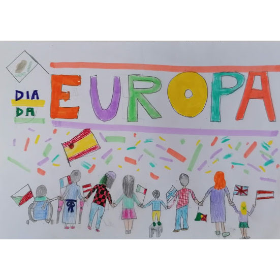 DIA
DA
EUROPA